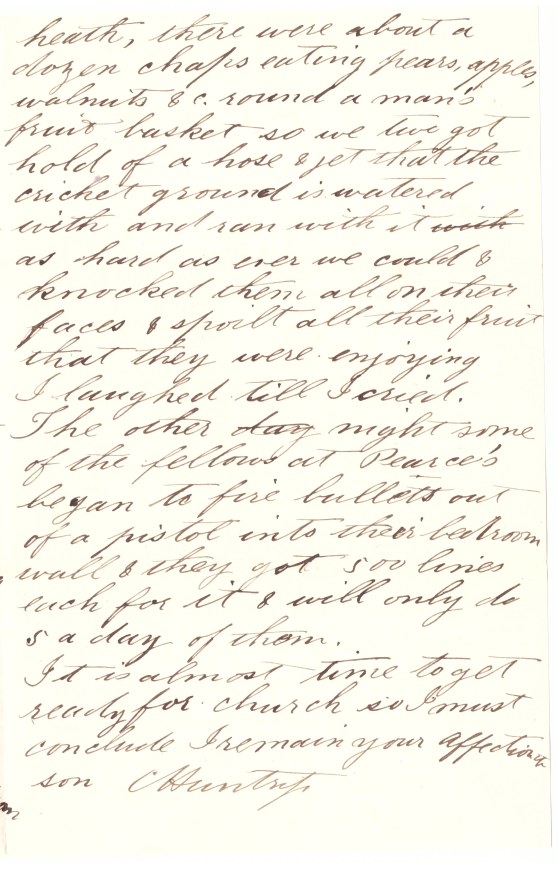 heath, there were about a
dozen chaps eating pears, apples,
walnuts & c. round a man's
fruit basket so we two got
hold of a hose & jet that the
cricket ground is watered
with and ran with it with
as hard as ever we could &
knocked them all on their
faces & spoilt all their fruit
that they were enjoying
I laughed till I cried.
The other day night some
of the fellows at Pearce's
began to fire bullets out
of a pistol into their bedroom
wall & they got 500 lines
each for it & will only do
5 a day of them.
It is almost time to get
ready for church so I must
conclude I remain your affectionate
son C Huntrip